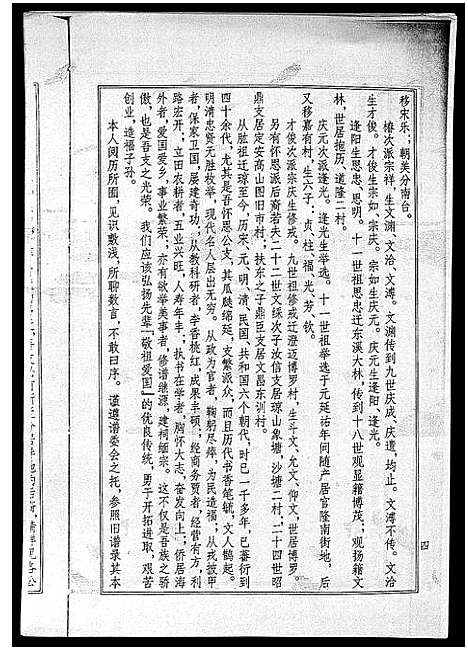 移宋乐；朝美分南台。
椿次派宗祥，生文渊、文洽、文溥。文渊传到九世庆成、庆遗，均止。文溥不传。文洽
生才俊。才俊生宗如、宗庆。宗如生庆元。庆元生逢阳、逢光。
逢阳生思忠、思明。十一世祖思忠迁东溪大林，传到十八世观显籍博茂；观扬籍文
林，世居抱历、道隆二村。
庆元次派逢光。逢光生举选。十一世祖举选于元延祐年间随产居官隆南街地，后
又移嘉有村，生六子：贞、柱、福、光、芳、钦。
才俊次派宗庆生修戒。九世祖修戒迁澄迈博罗村，生斗文、允文、仰文，世居博罗。
另有怀恩派后裔若夫二十二世文䌽次子汝信支居琼山象塘，沙塘二村；二十四世昭
鼎支居定安高山图旧市村；扶东之子鼎臣支居文昌东训村。
从脏祖迁琼至今，历宋、元、明、清、民国、共和国六个朝代，时已一千多年，已蕃衍到
四十余代。尤其是吾怀恩公支，其瓜瓞绵延，支繁派众，而且历代书香笔毓，文人鹊起。
明清忠贤元胜枚举，现代名人层出无穷。从政为官者，鞠躬尽瘁，为民造福；从戎披甲
者，保家卫国，屡建奇功；从教科研者，李香桃红，成果丰硕；经商务贾者，经营有方，利
路宏开；立田农耕者，五业兴旺，人寿年丰；执书在学者，胸怀大志，奋发向上；侨居海
外者，爱国爱乡，事业繁荣；亦有欲举美事者，修谱继源，建祠缅宗。这不仅是吾族之骄
傲，也是吾支之光荣。我们应该弘扬先辈『敬祖爱国』的优良传统，勇于开拓进取，艰苦
创业，造福子孙。
本人阅历所囿，见识敷浅，所聊数言，不敢曰序。谨遵谱委会之托，参照旧谱录其本
四